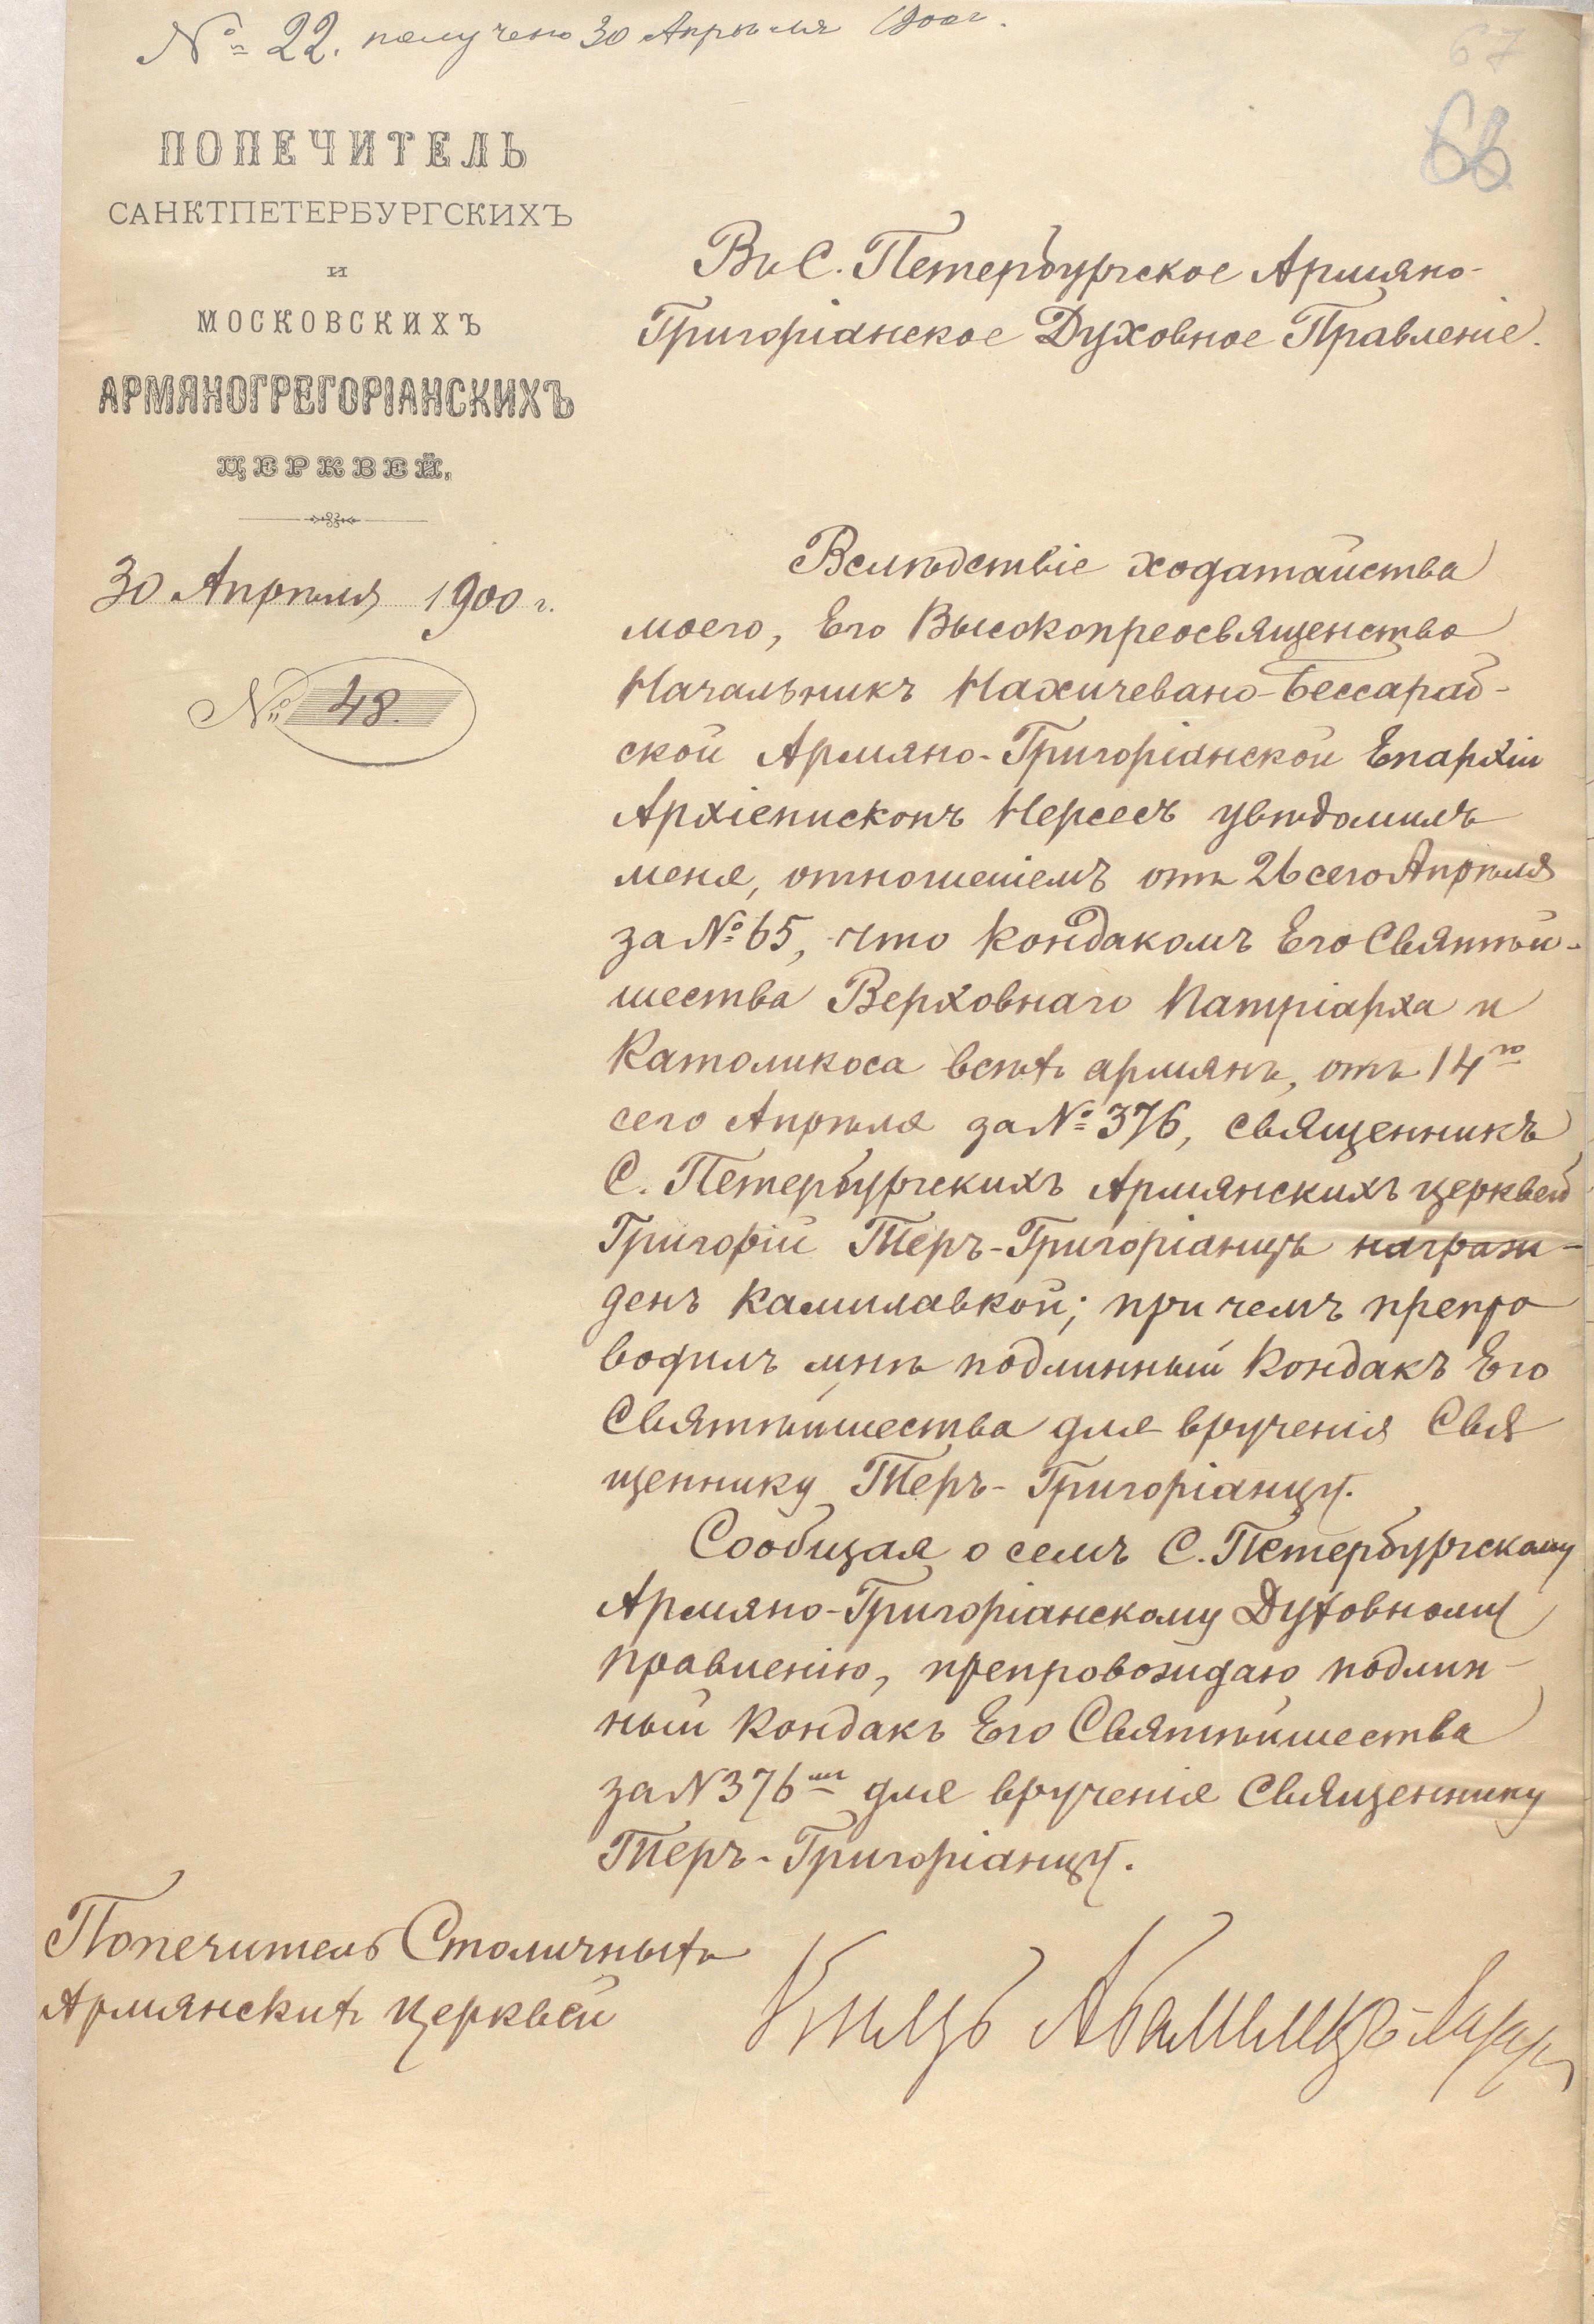 № 22. получено 30 Апрѣля 1900 г.
67
66
ПОПЕЧИТЕЛЬ
САНКТПЕТЕРБУРГСКИХЪ
И
МОСКОВСКИХЪ
АРМЯНОГРЕГОРІАНСКИХЪ
ЦЕРКВЕЙ.
30 Апрѣля 1900 г.
№ 48.
Въ С. Петербургское Армяно-
Григоріанское Духовное Правленіе.
Вслѣдствіе ходатайства
моего, Его Высокопреосвященство
Начальникъ Нахичевано-Бессараб-
ской Армяно-Григоріанской Епархіи
Архіепископъ Нерсесъ увѣдомилъ
меня, отношеніемъ отъ 26 сего Апрѣля
за № 65, что кондакомъ Его Святѣй-
шества Верховнаго Патріарха и
Католикоса всѣхъ армянъ, отъ 14го
сего Апрѣля за № 376, священникъ
С. Петербургскихъ Армянскихъ церквей
Григорій Теръ-Григоріанцъ награж-
денъ камилавкой; при чемъ препро
водилъ мнѣ подлинный Кондакъ Его
Святѣйшества для врученія Свя
щеннику Теръ-Григоріанцу.
Сообщая о семъ С. Петербургскому
Армяно-Григоріанскому Духовному
правленію, препровождаю подлин-
ный Кондакъ Его Святѣйшества
за N 376мъ для врученія Священнику
Теръ-Григоріанцу.
Попечитель Столичныхъ
Армянскихъ церквей
Князь Абамелекъ-Лазаревъ